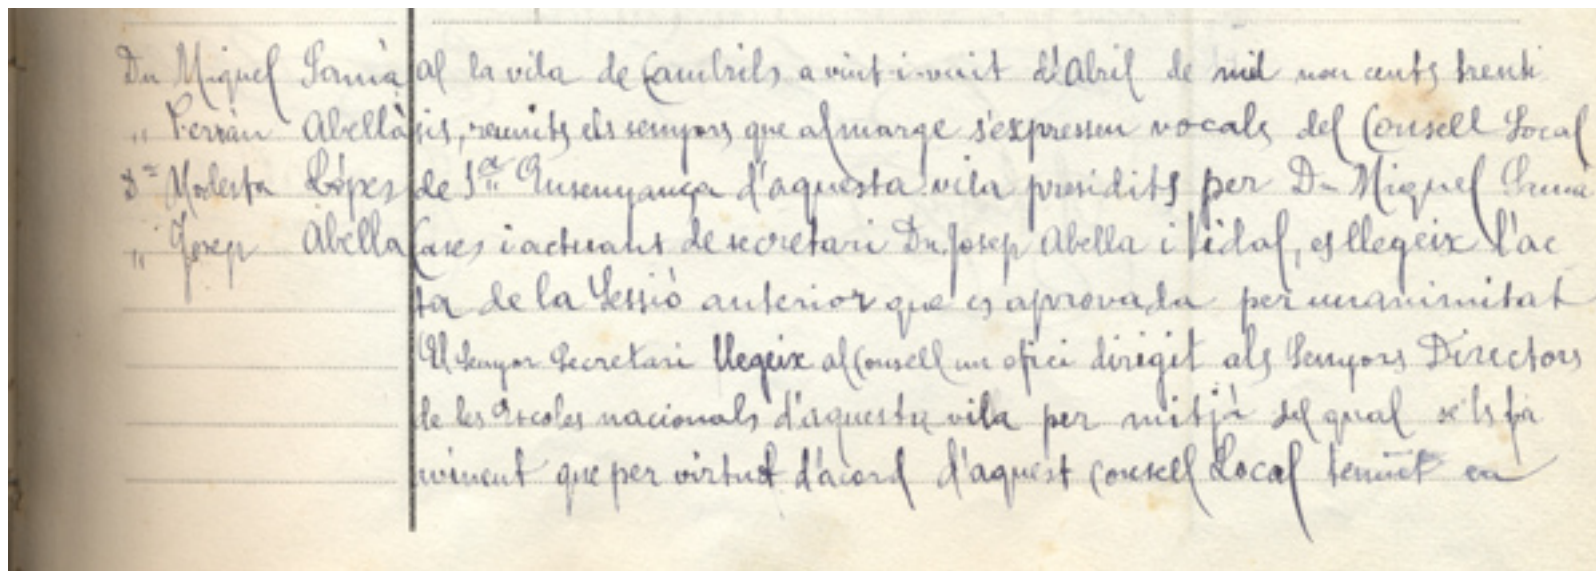 Dn Miquel Samà
" Ferràn Abellà
Dª Modesta López
" Josep Abella
al la vila de Cambrils a vint-i-vuit d'Abril de mil nou cents trenti
sis, reunits els senyors que al marge s'expressen vocals del Consell Local
de 1ª Ensenyança d'aquesta vila presidits per Dn Miquel Samà
Cases i actuant de secretari Dn Josep Abella i Vidal, es llegeix l'ac
ta de la Sessió anterior que es aprovada per unanimitat
El Senyor Secretari llegeix al Consell un ofici dirigit als Senyors Directors
de les Escoles nacionals d'aquesta vila per mitjà del qual se'ls fa
vinent que per virtut d'acord d'aquest Consell Local en